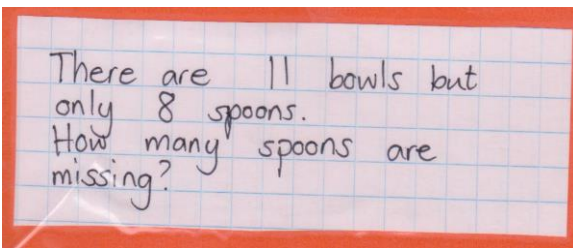 There are 11 bowls but
only 8 spoons.
How many spoons are
missing?